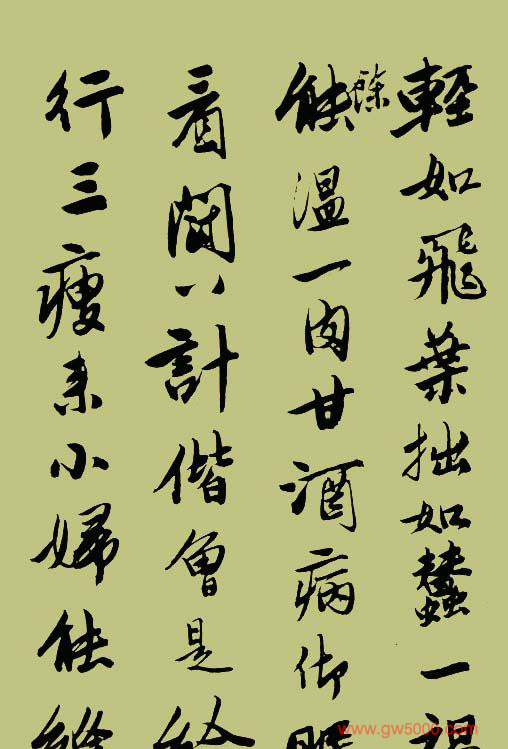 輕如飛葉拙如蠶一
能餘溫一肉甘酒病御
看閒八計偕會是
行三瘦素小婦能
www.gw5000.com